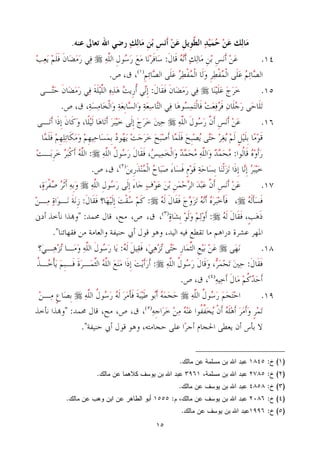 مَالِكَ عَنْ حُمَيْدِ الطَّوِيلِ عَنْ أَنَسِ بْنِ مَالِكٍ رضي الله تعالى عنه.
١٤. مَالِكٌ عَنْ أَنَسِ بْنِ مَالِكٍ أَنَّهُ قَالَ: سَافَرْنَا مَعَ رَسُولِ اللَّهِ ﷺ فِي رَمَضَانَ فَلَمْ يَعِبْ
الصَّائِمُ عَلَى الْمُفْطِرِ وَلَا الْمُفْطِرُ عَلَى الصَّائِمِ(١)، ق، ص.
١٥. خَرَجَ عَلَيْنَا ﷺ فِي رَمَضَانَ فَقَالَ: إِنِّي أُرِيتُ هَذِهِ اللَّيْلَةَ فِي رَمَضَانَ حَتَّى
تَلَاحَى رَجُلَانِ فَرُفِعَتْ فَالْتَمِسُوهَا فِي التَّاسِعَةِ وَالسَّابِعَةِ وَالْخَامِسَةِ، ق، ص.
١٦. عَنْ أَنَسٍ أَنَّ رَسُولَ اللَّهِ ﷺ حِينَ خَرَجَ إِلَى خَيْبَرَ أَتَاهَا لَيْلًا، وَكَانَ إِذَا أَتَى
قَوْمًا بِلَيْلٍ لَمْ يُغِرْ حَتَّى يُصْبِحَ فَلَمَّا أَصْبَحَ خَرَجَتْ يَهُودُ بِمَسَاحِيهِمْ وَمَكَاتِلِهِمْ فَلَمَّا
رَأَوْهُ قَالُوا: مُحَمَّدٌ وَاللَّهِ مُحَمَّدٌ وَالْخَمِيسُ، فَقَالَ رَسُولُ اللَّهِ ﷺ: اللَّهُ أَكْبَرُ خَرِبَتْ
خَيْبَرُ إِنَّا إِذَا نَزَلْنَا بِسَاحَةِ قَوْمٍ فَسَاءَ صَبَاحُ الْمُنْذَرِينَ(٢)، ق، ص.
١٧. عَنْ أَنَسٍ أَنَّ عَبْدَ الرَّحْمَنِ بْنَ عَوْفٍ جَاءَ إِلَى رَسُولِ اللَّهِ ﷺ وَبِهِ أَثَرُ صُفْرَةٍ،
فَسَأَلَهُ ﷺ فَأَخْبَرَهُ أَنَّهُ تَزَوَّجَ فَقَالَ لَهُ ﷺ: كَمْ سُقْتَ إِلَيْهَا؟ فَقَالَ: زِنَةَ نَوَاةٍ مِنْ
ذَهَبٍ، فَقَالَ لَهُ ﷺ: أَوْلِمْ وَلَوْ بِشَاةٍ(٣)، ق، ص، مج، قال محمد: "وهذا نأخذ أدنى
المهر عشرة دراهم ما تقطع فيه اليد، وهو قول أبي حنيفة والعامة من فقهائنا".
١٨. نَهَى ﷺ عَنْ بَيْعِ الثِّمَارِ حَتَّى تُزْهِيَ، فَقِيلَ لَهُ: يَا رَسُولَ اللَّهِ وَمَا تُزْهِي؟
فَقَالَ: حِينَ تَحْمَرُّ، وَقَالَ رَسُولُ اللَّهِ ﷺ: أَرَأَيْتَ إِذَا مَنَعَ اللَّهُ الثَّمَرَةَ فَبِمَ يَأْخُذُ
أَحَدُكُمْ مَالَ أَخِيهِ(٤)، ق، ص.
١٩. احْتَجَمَ رَسُولُ اللَّهِ ﷺ حَجَمَهُ أَبُو طَيْبَةَ فَأَمَرَ لَهُ رَسُولُ اللَّهِ ﷺ بِصَاعٍ مِنْ
تَمْرٍ وَأَمَرَ أَهْلَهُ أَنْ يُخَفِّفُوا عَنْهُ مِنْ خَرَاجِهِ(٥)، ق، ص، مج، قال محمد: "وهذا نأخذ
لا بأس أن يعطى الحجام أجرًا على حجامته، وهو قول أبي حنيفة".
(١) خ: ١٨٤٥ عبد الله بن مسلمة عن مالك.
(٢) خ: ٢٧٨٥ عبد الله بن مسلمة، ٣٩٦١ عبد الله بن يوسف كلاهما عن مالك.
(٣) خ: ٤٨٥٨ عبد الله بن يوسف عن مالك.
(٤) خ: ٢٠٨٦ عبد الله بن يوسف عن مالك، م: ١٥٥٥ أبو الطاهر عن ابن وهب عن مالك.
(٥) خ: ١٩٩٦ عبد الله بن يوسف عن مالك.
١٥